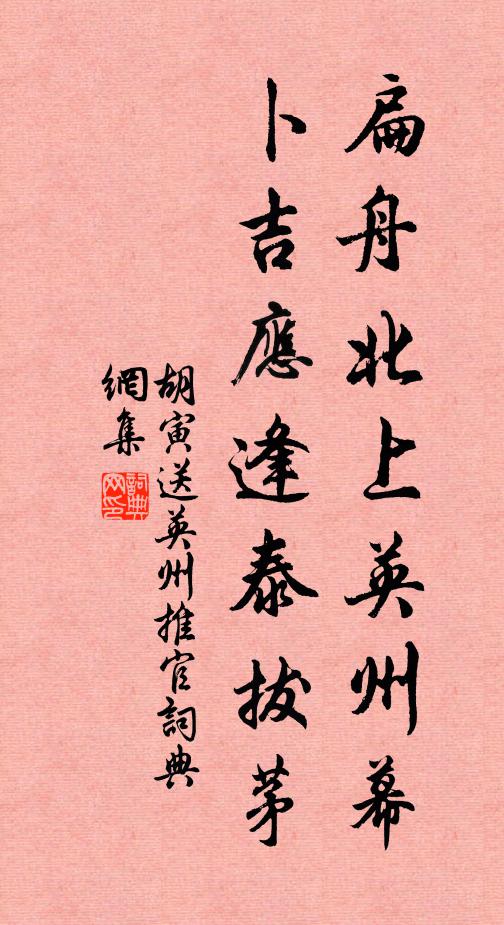 扁舟北上英州幕
卜吉應逢泰拔茅
胡寅送英州推官詞典
網集
詞典網印